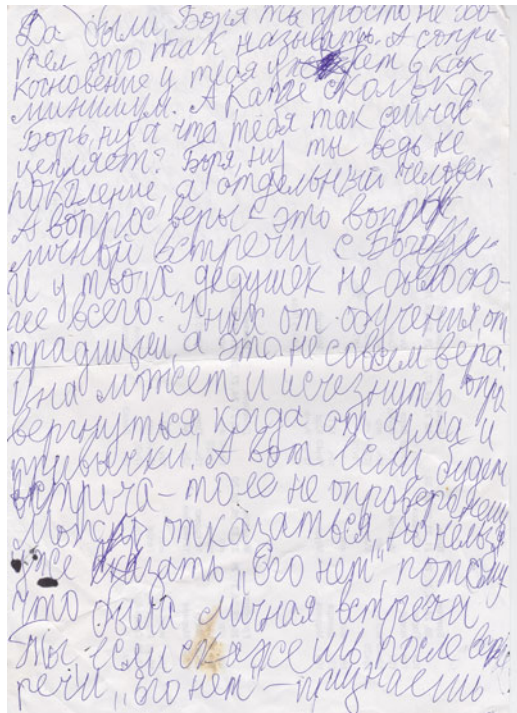 Да были. Боря ты просто не хо-
тел это так называть. А сопри-
косновение у тебя может 6 как
минимум. А какие сколько?
Борь, ну а что тебя так сейчас
цепляет? Боря, ну ты ведь не
поколение, а отдельный человек.
А вопрос веры – это вопрос
личной встречи с Богом
И у твоих дедушек не было ско-
рее всего. У них от обучения, от
традиции, а это не совсем вера.
Она может и исчезнуть опро
вергнуться, когда от ума и
привычки. А вот если будет
встреча – то ее не опровергнешь
Можно отказаться, но нельзя
уже сказать „Его нет" потому
что была личная встреча
Ты если скажешь после вст
речи „его нет – признаешь